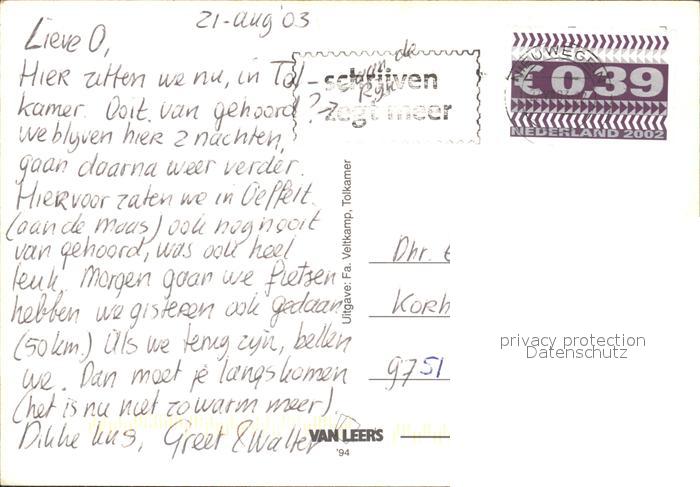 21-aug '03
Lieve O,
Hier zitten we nu, in Tol-
kamer. Ooit van gehoord?
aan de
Rijn
We blijven hier 2 nachten,
gaan daarna weer verder.
Hiervoor zaten we in Oeffelt.
(aan de Maas) ook nog nooit
van gehoord, was ook heel
leuk. Morgen gaan we fietsen
hebben we gisteren ook gedaan
(50 km.) Als we terug zijn, bellen
we. Dan moet je langskomen
(het is nu niet zo warm meer).
Dikke kus, Greet & Walter
schrijven
zegt meer
NIEUWEGEIN
€0,39
NEDERLAND 2002
Uitgave: Fa. Veltkamp, Tolkamer
Dhr.
Korh
9751
privacy protection
Datenschutz
VAN LEERS
'94